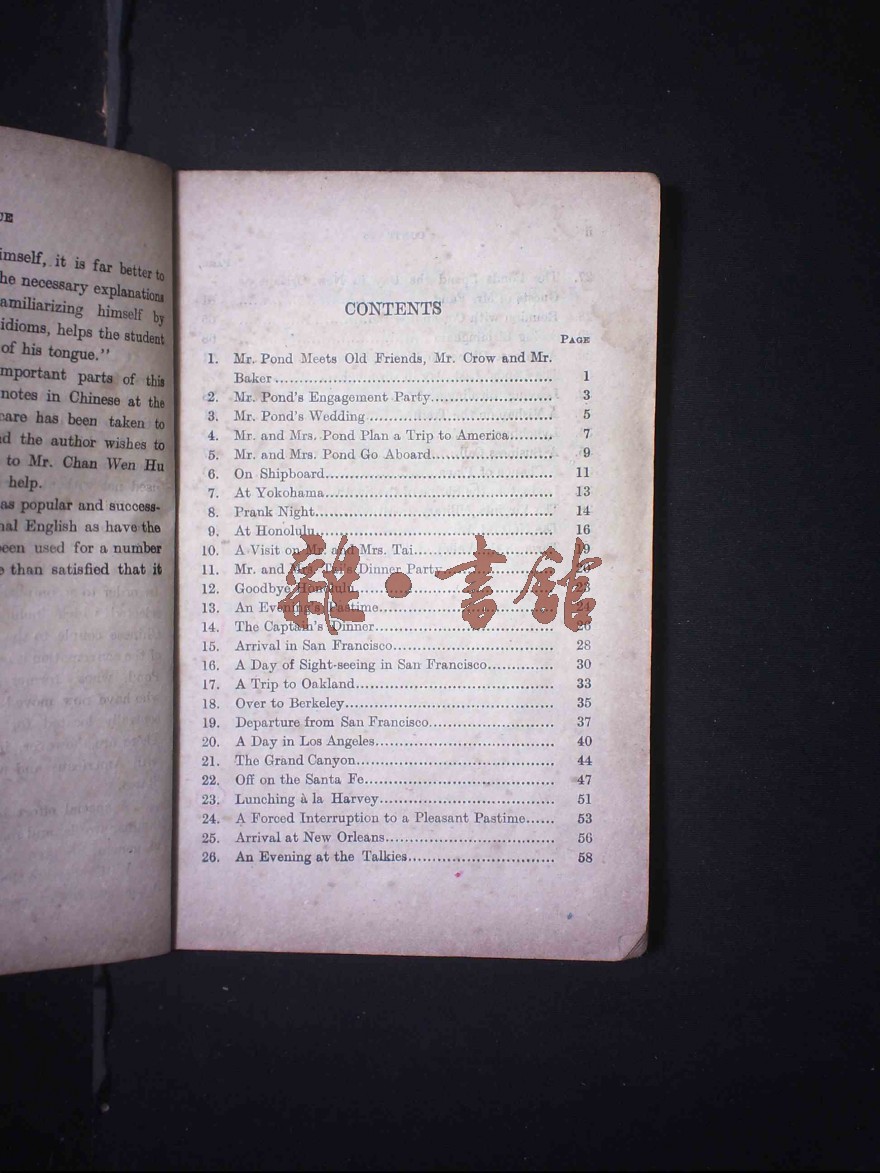 UE
imself, it is far better to
he necessary explanations
amiliarizing himself by
idioms, helps the student
of his tongue."
mportant parts of this
notes in Chinese at the
care has been taken to
d the author wishes to
to Mr. Chan Wen Hu
help.
as popular and success-
nal English as have the
een used for a number
than satisfied that it
CONTENTS
PAGE
1. Mr. Pond Meets Old Friends, Mr. Crow and Mr.
Baker 1
2. Mr. Pond's Engagement Party 3
3. Mr. Pond's Wedding 5
4. Mr. and Mrs. Pond Plan a Trip to America 7
5. Mr. and Mrs. Pond Go Aboard 9
6. On Shipboard 11
7. At Yokohama 13
8. Prank Night 14
9. At Honolulu 16
10. A Visit on Mr. and Mrs. Tai 19
11. Mr. and Mrs. Tai's Dinner Party 20
12. Goodbye Honolulu 23
13. An Evening's Pastime 24
14. The Captain's Dinner 26
15. Arrival in San Francisco 28
16. A Day of Sight-seeing in San Francisco 30
17. A Trip to Oakland 33
18. Over to Berkeley 35
19. Departure from San Francisco 37
20. A Day in Los Angeles 40
21. The Grand Canyon 44
22. Off on the Santa Fe 47
23. Lunching à la Harvey 51
24. A Forced Interruption to a Pleasant Pastime 53
25. Arrival at New Orleans 56
26. An Evening at the Talkies 58
雜·書館